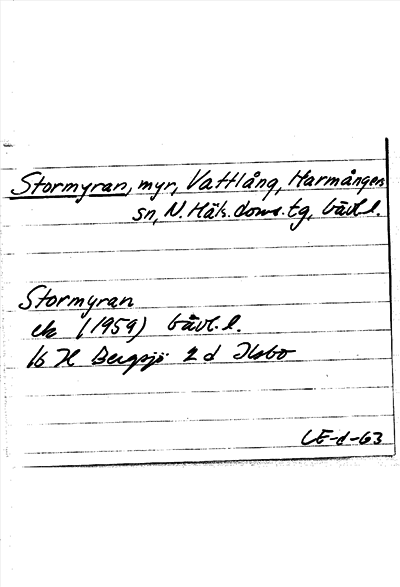 Stormyran, myr, Vattlång, Harmångers
sn, N. Häls. doms. tg, Gävl. l.
Stormyran
ek (1959) Gävl. l.
16 H Bergsjö 2 d Ilsbo
LE-d-63